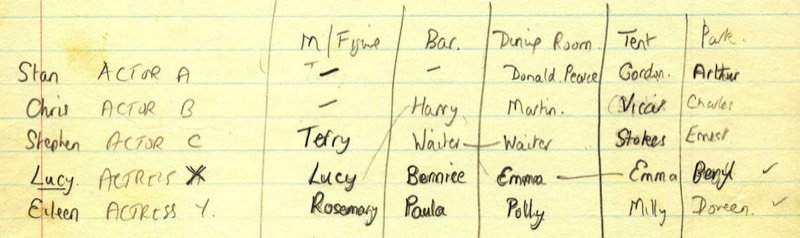 M/Figure Bar. Dining Room Tent Park.
Stan ACTOR A – – Donald Pearce Gordon. Arthur
Chris ACTOR B – Harry Martin. Vicar Charles
Stephen ACTOR C Terry Waiter – Waiter Stokes Ernest
Lucy. ACTRESS X Lucy Bernice Emma – Emma Beryl ✓
Eileen ACTRESS Y. Rosemary Paula Polly Milly Doreen. ✓